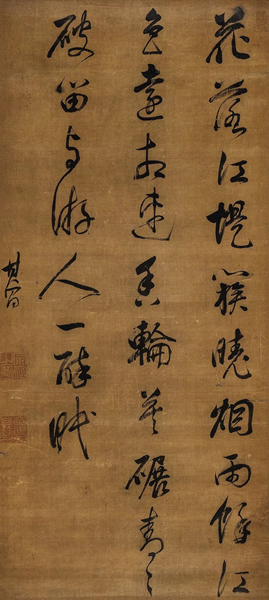 花落江堤簇曉烟雨餘江
色遠相連香輪莫碾青々
破留与游人一醉眠
其昌